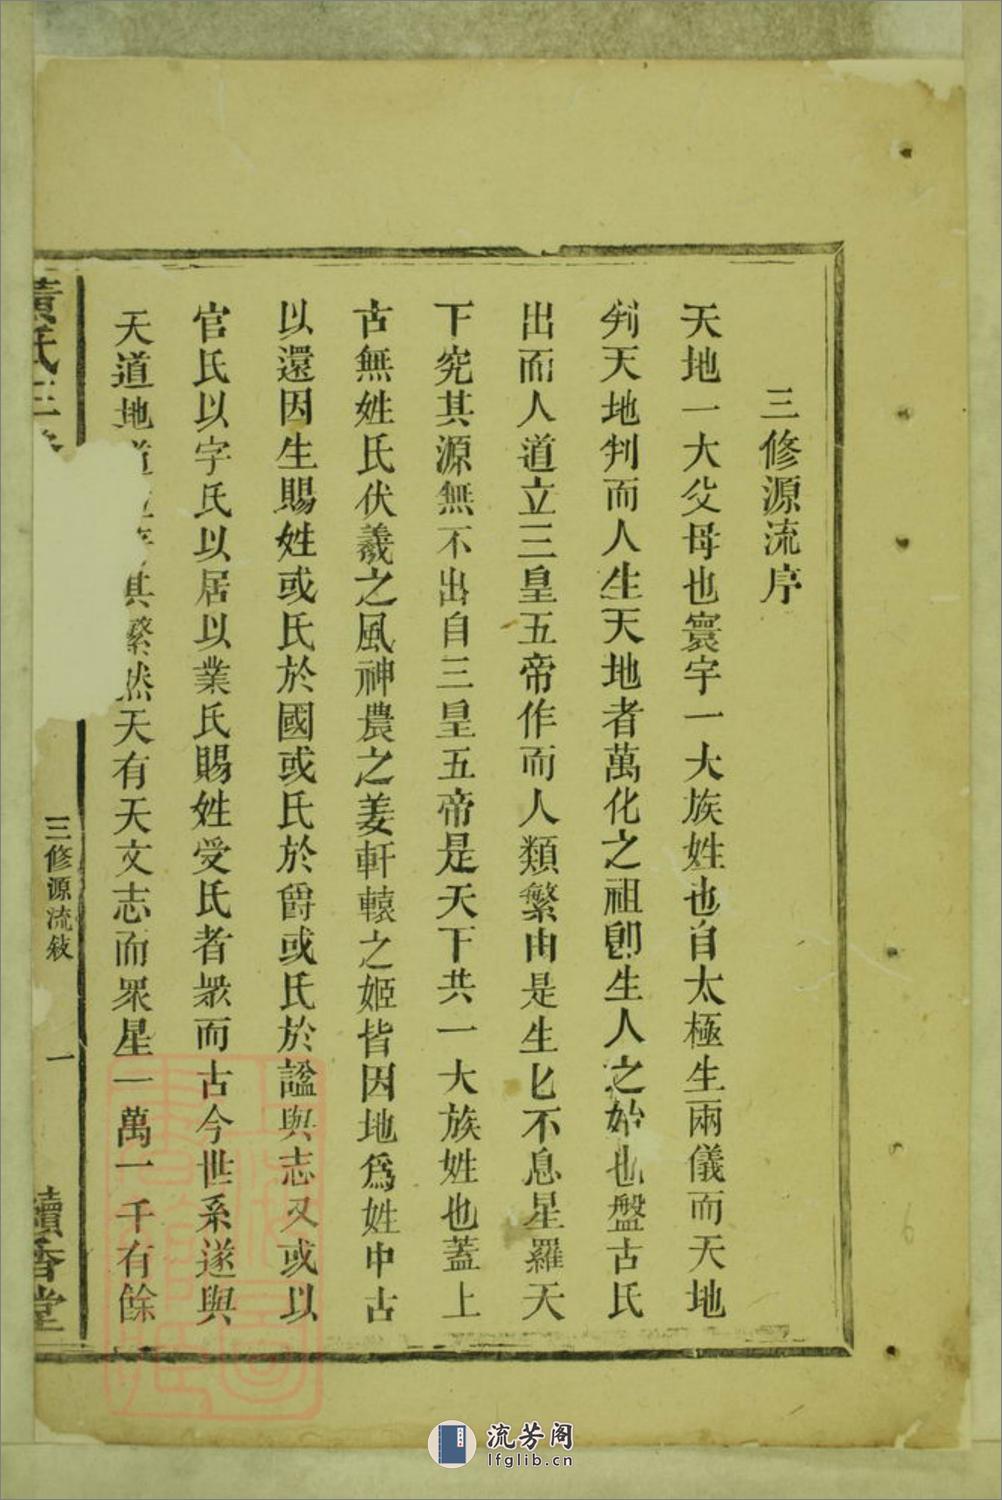 三修源流序
天地一大父母也寰宇一大族姓也自太極生兩儀而天地
判天地判而人生天地者萬化之祖卽生人之始也盤古氏
出而人道立三皇五帝作而人類繁由是生匕不息星羅天
下究其源無不出自三皇五帝是天下共一大族姓也蓋上
古無姓氏伏羲之風神農之姜軒轅之姬皆因地爲姓中古
以還因生賜姓或氏於國或氏於爵或氏於諡與志又或以
官氏以字氏以居以業氏賜姓受氏者衆而古今世系遂與
天道地道並其繁然天有天文志而眾星一萬一千有餘
黃氏三修
三修源流敍
一
續香堂
流芳阁
lfglib.cn